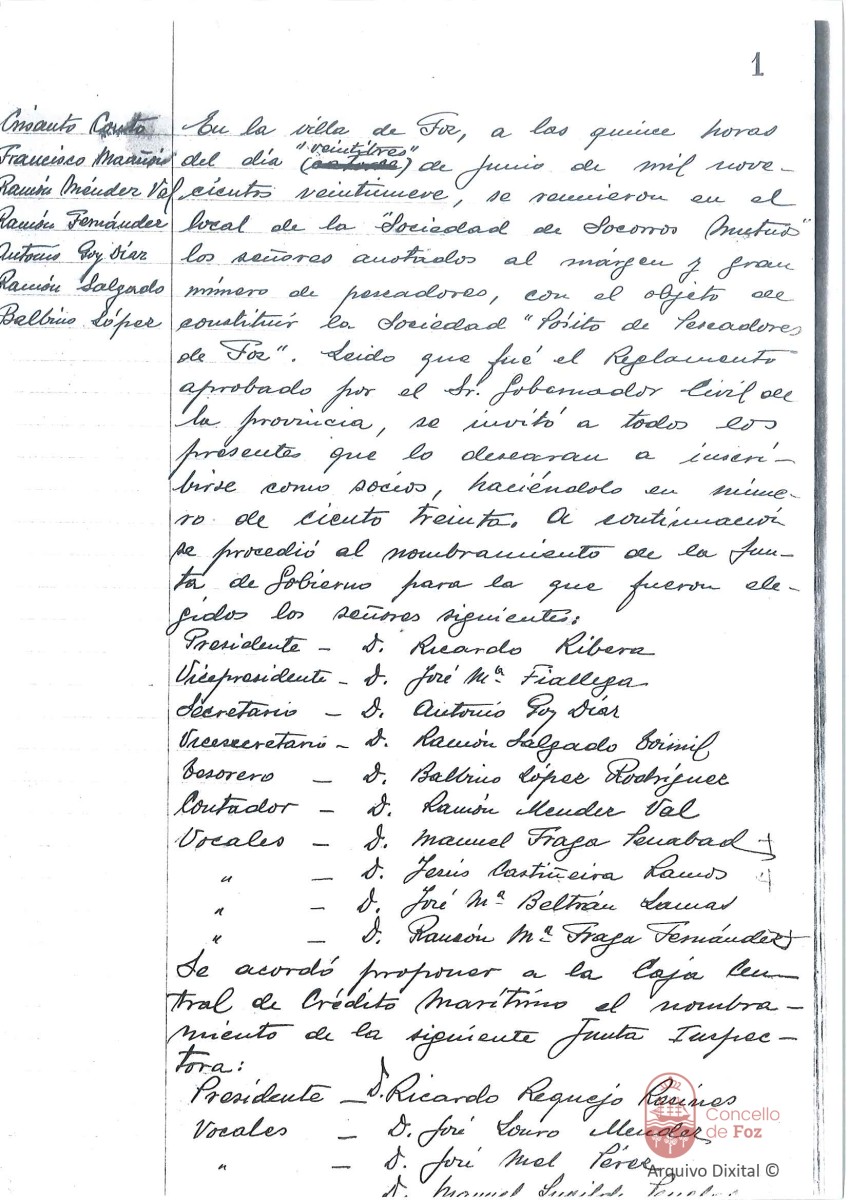 1
Crisanto Couto
Francisco Maañón
Ramón Méndez Val
Ramón Fernández
Antonio Goy Díaz
Ramón Salgado
Balbino López
En la villa de Foz, a las quince horas
del día "veintitres" de Junio de mil nove-
cientos veintinueve, se reunieron en el
local de la "Sociedad de Socorros Mutuos"
los señores anotados al márgen y gran
número de pescadores, con el objeto de
constituir la Sociedad "Pósito de Pescadores
de Foz". Leido que fué el Reglamento
aprobado por el Sr. Gobernador Civil de
la provincia, se invitó a todos los
presentes que lo desearan a inscri-
birse como socios, haciéndolo en núme-
ro de ciento treinta. A continuación
se procedió al nombramiento de la Jun-
ta de Gobierno para la que fueron ele-
gidos los señores siguientes:
Presidente - D. Ricardo Ribera
Vicepresidente - D. José Mª Fiallega
Secretario - D. Antonio Goy Díaz
Vicesecretario - D. Ramón Salgado
Tesorero - D. Balbino López Rodríguez
Contador - D. Ramón Mendez Val
Vocales - D. Manuel Fraga Penabad
" - D. Jesús Castiñeira Ramos
" - D. José Mª Beltrán Lamas
" - D. Ramón Mª Fraga Fernández
Se acordó proponer a la Caja Cen-
tral de Crédito Marítimo el nombra-
miento de la siguiente Junta Inspec-
tora:
Presidente - D. Ricardo Requejo Rasines
Vocales - D. José Louro Mendez
" - D. José Mel Pérez
D. Manuel
Concello
de Foz
Arquivo Dixital ©